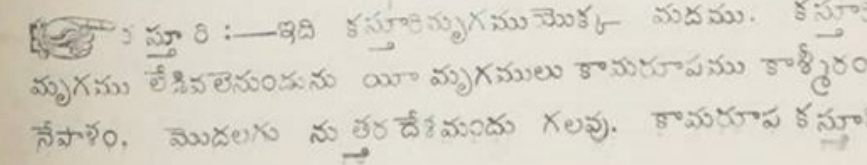 కస్తూరి :—ఇది కస్తూరిమృగముయొక్క మదము. కస్తూ
మృగము లేడివలెనుండును యీ మృగములు కామరూపము కాశ్మీరం
నేపాళం, మొదలగు నుత్తర దేశమందు గలవు. కామరూప కస్తూ